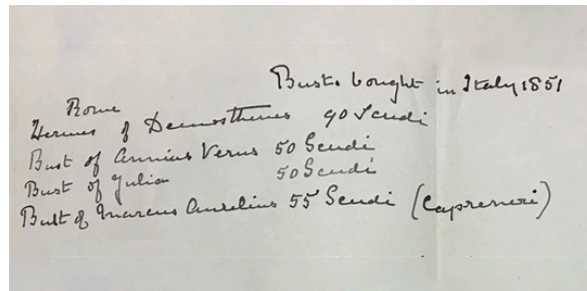 Busts bought in Italy 1851
Rome
Hermes of Demosthenes 90 Scudi
Bust of Annius Verus 50 Scudi
Bust of Julia 50 Scudi
Bust of Marcus Aurelius 55 Scudi